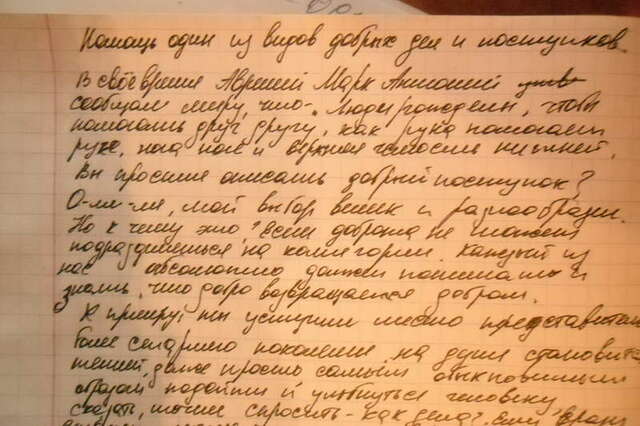 Помощь один из видов добрых дел и поступков.
В своё время Аврелий Марк Антоний
сообщал миру, что "Люди рождены, чтобы
помогать друг другу, как рука помогает
руке, нога ноге и верхняя челюсть нижней.
Вы просите описать добрый поступок?
О-ля-ля, мой выбор велик и разнообразен.
Но к чему это? Ведь доброта не может
подразделяться на категории. Каждый из
нас абсолютно должен понимать и
знать, что добро возвращается добром.
К примеру, ты уступил место представителю
более старшего поколения, на душе становится
теплей, даже просто самым обыкновенным
образом подойти и улыбнуться человеку
сказать, точнее спросить - как дела? или